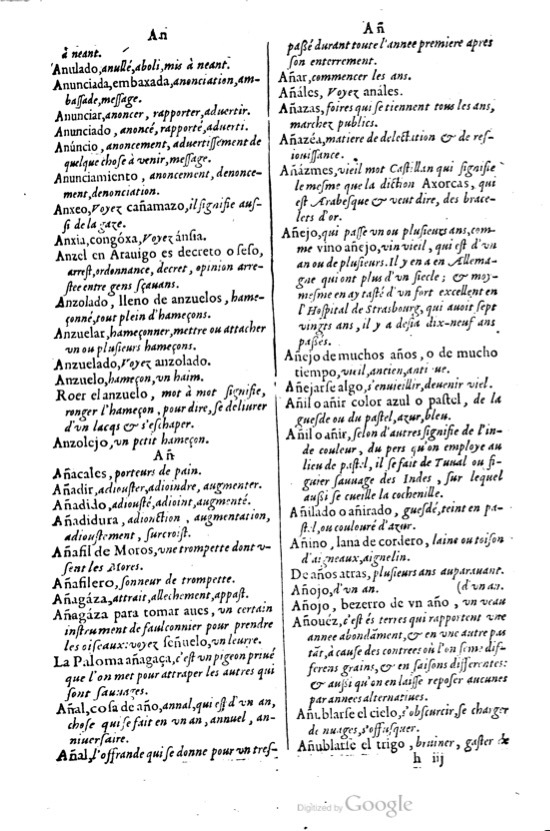 An
à neant.
Anulado, anullé, aboli, mis à neant.
Anunciada, embaxada, anonciation, am-
bassade, message.
Anunciar, anoncer, rapporter, advertir.
Anunciado, anoncé, rapporté, adverti.
Anúncio, anoncement, advertissement de
quelque chose à venir, message.
Anunciamiento, anoncement, denonce-
ment, denonciation.
Anxeo, Voyez cañamazo, il signifie aus-
si de la gaze.
Anxia, congóxa, Voyez ánsia.
Anzel en Arauigo es decreto o seso,
arrest, ordonnance, decret, opinion arre-
stee entre gens sçauans.
Anzolado, lleno de anzuelos, hame-
çonné, tout plein d'hameçons.
Anzuelar, hameçonner, mettre ou attacher
vn ou plusieurs hameçons.
Anzuelado, Voyez anzolado.
Anzuelo, hameçon, vn haim.
Roer el anzuelo, mot à mot signifie,
ronger l'hameçon, pour dire, se deliurer
d'vn lacqs & s'eschaper.
Anzolejo, vn petit hameçon.
Añ
Añacales, porteurs de pain.
Añadir, adiouster, adioindre, augmenter.
Añadido, adiousté, adioint, augmenté.
Añadidura, adionction, augmentation,
adioustement, surcroist.
Añafil de Moros, vne trompette dont v-
sent les Mores.
Añafilero, sonneur de trompette.
Añagáza, attrait, allechement, appast.
Añagáza para tomar aues, vn certain
instrument de faulconnier pour prendre
les oiseaux: voyez señuelo, vn leurre.
La Paloma añagaça, c'est vn pigeon priué
que l'on met pour attraper les autres qui
sont sauuages.
Añal, cosa de año, annal, qui est d'vn an,
chose qui se fait en vn an, annuel, an-
niuersaire.
Añal, l'offrande qui se donne pour vn tres-
Añ
passé durant toute l'annee premiere apres
son enterrement.
Añar, commencer les ans.
Añáles, Voyez análes.
Añazas, foires qui se tiennent tous les ans,
marchez publics.
Añazéa, matiere de delectation & de res-
iouissance.
Añázmes, vieil mot Castillan qui signifie
le mesme que la diction Axorcas, qui
est Arabesque & veut dire, des brace-
lets d'or.
Añejo, qui passe vn ou plusieurs ans, com-
me vino añejo, vin vieil, qui est d'vn
an ou de plusieurs. Il y en a en Allema-
gne qui ont plus d'vn siecle; & moy-
mesme en ay tasté d'vn fort excellent en
l'Hospital de Strasbourg, qui auoit sept
vingts ans, il y a desia dix-neuf ans
passés.
Añejo de muchos años, o de mucho
tiempo, vieil, ancien,
Añejarse algo, s'enuieillir, deuenir viel.
Añil o añir color azul o pastel, de la
guesde ou du pastel, azur, bleu.
Añil o añir, selon d'autres signifie de l'in-
de couleur, du pers qu'on employe au
lieu de pastel, il se fait de Tunal ou fi-
guier sauuage des Indes, sur lequel
aussi se cueille la cochenille.
Añilado o añirado, guesdé, teint en pa-
stel, ou couloure d'azur.
Añino, lana de cordero, laine ou toison
d'aigneaux, aignelin.
De años atras, plusieurs ans auparauant.
Añojo, d'vn an. (d'vn an.
Añojo, bezerro de vn año, vn veau
Añouéz, c'est és terres qui rapportent vne
annee abondāment, & en vne autre pas
tāt, à cause des contrees où l'on seme dif-
ferens grains, & en saisons differentes:
& aussi qu'on en laisse reposer aucunes
par annees alternatiues.
Añublarse el cielo, s'obscurcir, se charger
de nuages, s'offusquer.
Añublarse el trigo, bruiner, gaster &
h iij
Digitized by Google